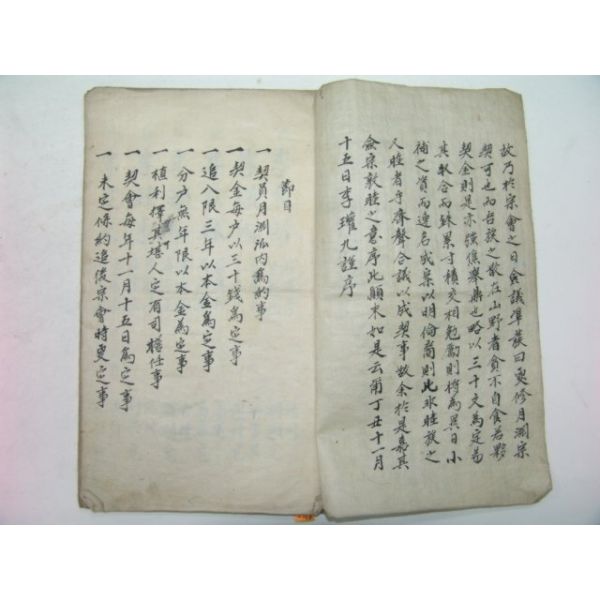 故乃於宗會之日僉議準發曰更修月淵宗
契可也而吾族之散在山野者貧不自食若夥
契金則是亦强焦擧鼎也略以三十文爲定
其收合而銖累寸積交相勉勵則將爲異日小
補之資而連名成案以明倫高則此永睦族之
人睦者乎齊聲合議以成契事故余於是嘉其
僉宗敦睦之意序此顚末如是云爾丁丑十一月
十五日李瓘九謹序
節目
一 契員月淵派內爲約事
一 契金每户以三十錢爲定事
一 追入限三年以本金爲定事
一 分户無年限以本金爲定事
一 植利擇其堪人定有司擔任事
一 契會每年十一月十五日爲定事
一 未定條約追後宗會時更定事